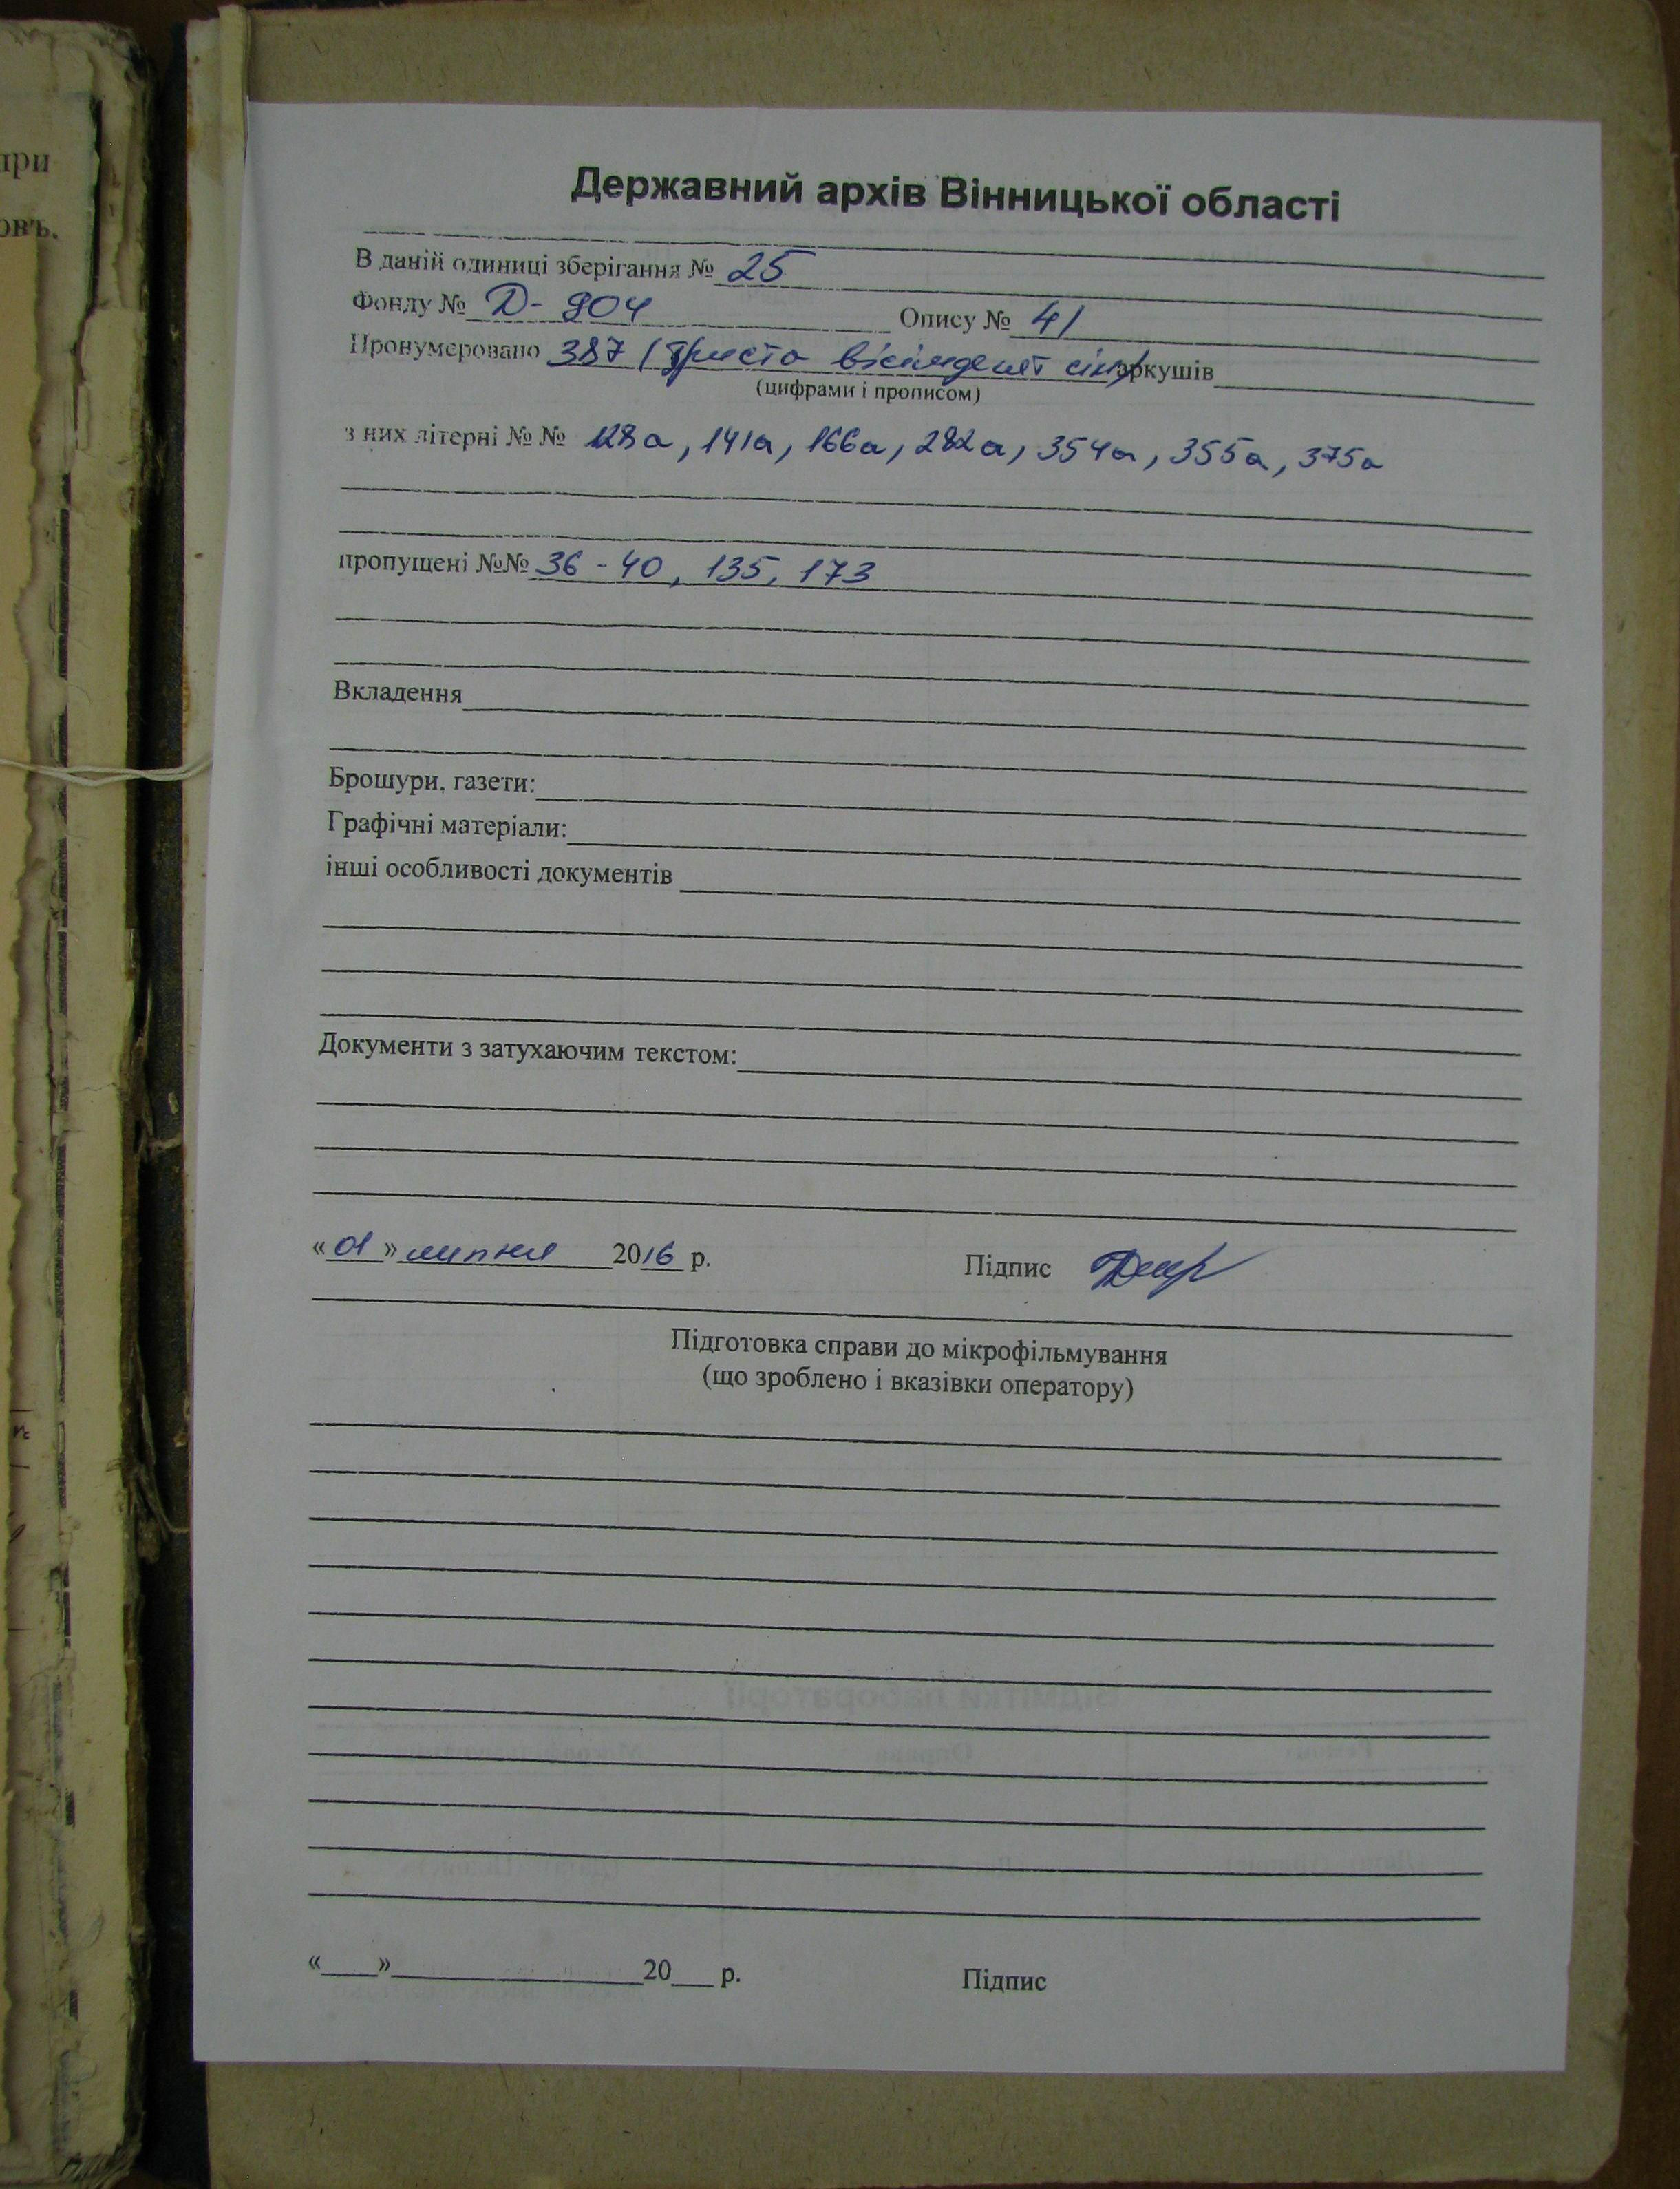 при
овъ.
Державний архів Вінницької області
В даній одиниці зберігання № 25
Фонду № Д-904 Опису № 41
Пронумеровано 387 (триста вісімдесят сім) аркушів
(цифрами і прописом)
з них літерні № № 128а, 141а, 166а, 282а, 354а, 355а, 375а
пропущені №№ 36-40, 135, 173
Вкладення
Брошури, газети:
Графічні матеріали:
інші особливості документів
Документи з затухаючим текстом:
«01» липня 2016 р. Підпис
Підготовка справи до мікрофільмування
(що зроблено і вказівки оператору)
«___»______________20___ р. Підпис